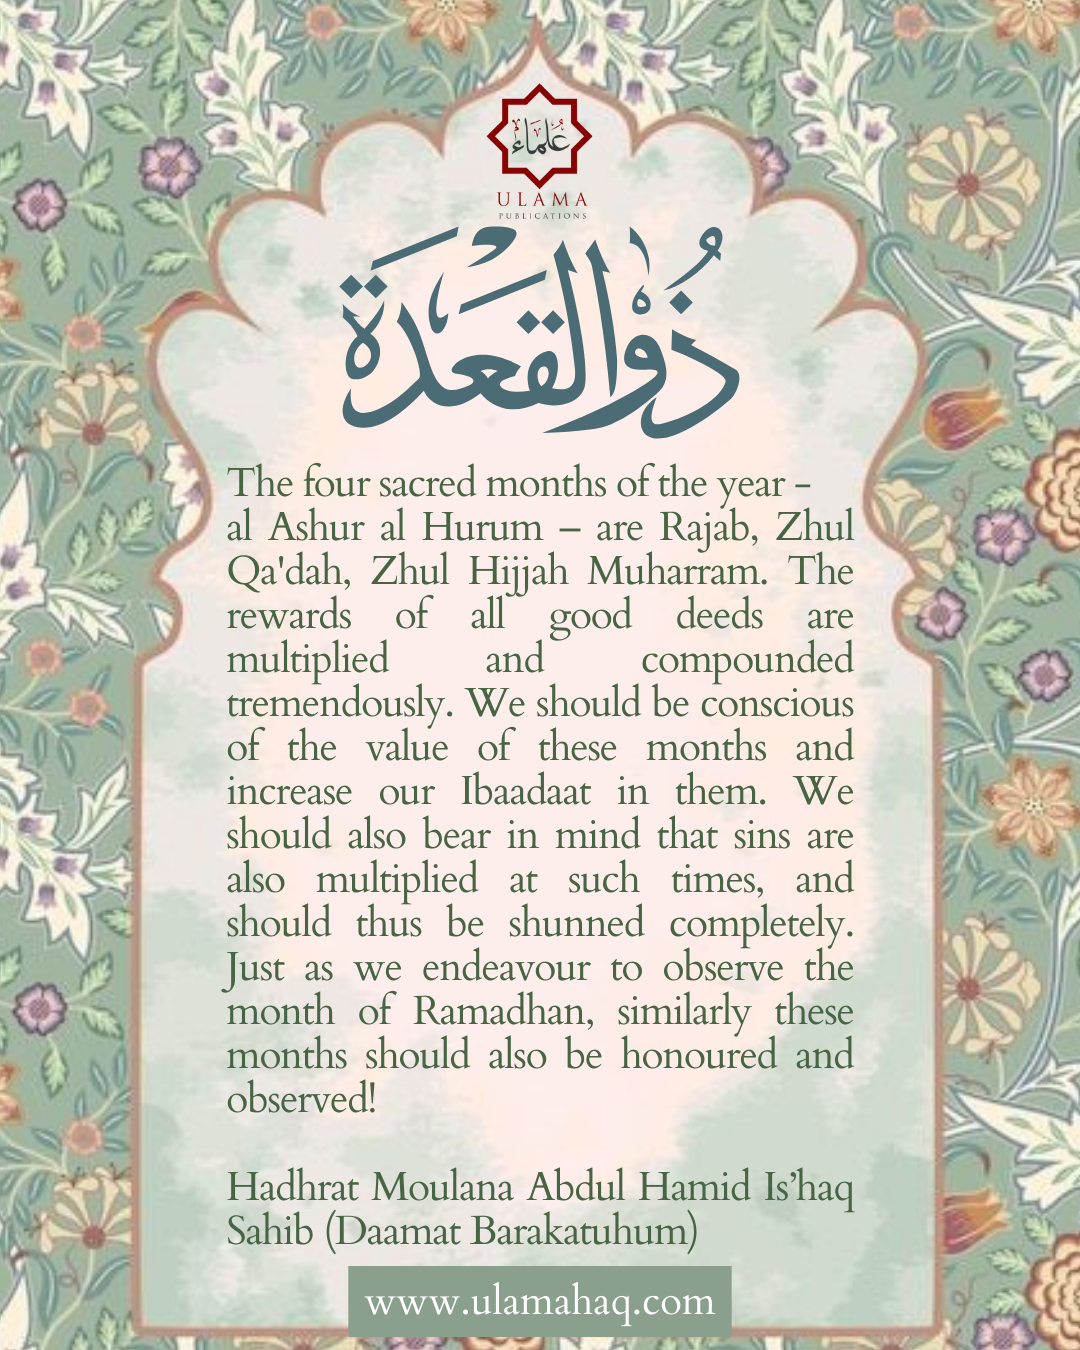 عُلَمَاءُ
ULAMA
PUBLICATIONS
ذُوالْقَعْدَة
The four sacred months of the year -
al Ashur al Hurum – are Rajab, Zhul
Qa'dah, Zhul Hijjah Muharram. The
rewards of all good deeds are
multiplied and compounded
tremendously. We should be conscious
of the value of these months and
increase our Ibaadaat in them. We
should also bear in mind that sins are
also multiplied at such times, and
should thus be shunned completely.
Just as we endeavour to observe the
month of Ramadhan, similarly these
months should also be honoured and
observed!
Hadhrat Moulana Abdul Hamid Is’haq
Sahib (Daamat Barakatuhum)
www.ulamahaq.com